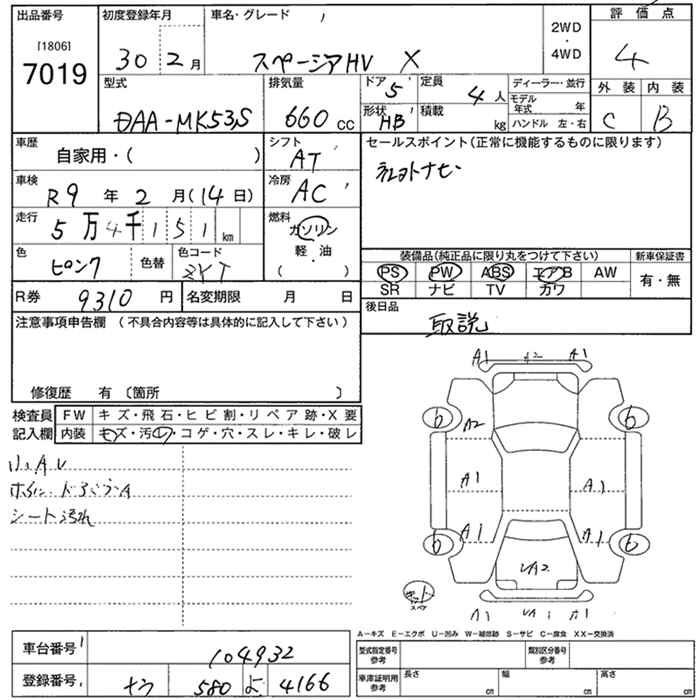 出品番号
[1806]
7019
初度登録年月
30 2 月
車名・グレード
スペーシアHV X
2WD
・
4WD
評価点
4
外装 内装
C B
型式
DAA-MK53S
排気量
660 cc
ドア 5
形状 HB
定員 4 人
積載 kg
ディーラー・並行
モデル年式 年
ハンドル 左・右
車歴
自家用・( )
シフト
AT
車検
R9 年 2 月(14日)
冷房
AC
走行
5万4千151 km
燃料
ガソリン
軽・油
( )
色
ピンク
色替
色コード
ZYT
セールスポイント(正常に機能するものに限ります)
社外ナビ
装備品(純正品に限り丸をつけて下さい)
PS PW ABS エアB AW
SR ナビ TV カワ
新車保証書
有・無
R券 9310 円
名変期限 月 日
後日品
取説
注意事項申告欄 (不具合内容等は具体的に記入して下さい)
修復歴 有 〔箇所 〕
検査員記入欄
FW キズ・飛石・ヒビ割・リペア跡・X要
内装 キズ・汚レ・コゲ・穴・スレ・キレ・破レ
小A.U
シート汚れ
A1 A2 A1
6 6
A2
A1 A1
A1 A1
6 6
UA2
スペア
A1 UA1 A1
A−キズ E−エクボ U−凹み W−補修跡 S−サビ C−腐食 XX−交換済
車台番号
104932
登録番号
580 よ 4166
型式指定番号
参考
類別区分番号
参考
車庫証明用
参考
長さ cm
幅 cm
高さ cm